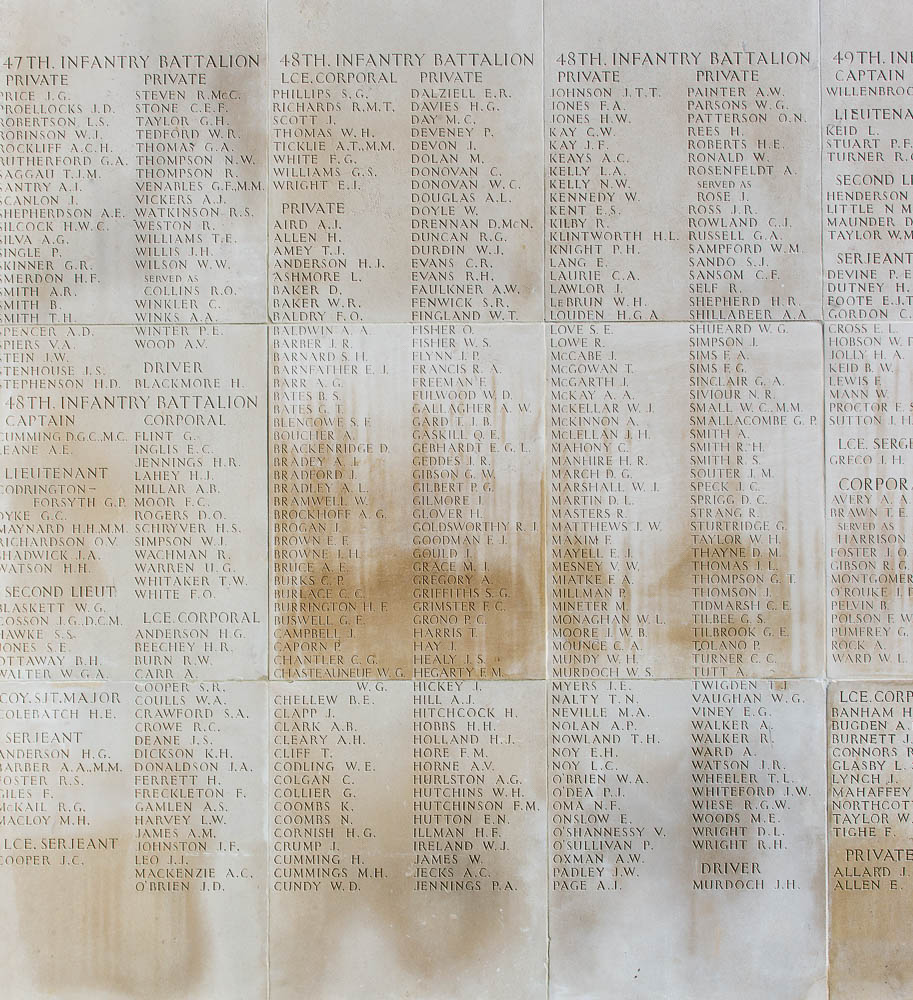 47TH. INFANTRY BATTALION
PRIVATE
PRICE J.G.
PROELLOCKS J.D.
ROBERTSON, L.S.
ROBINSON W.J.
ROCKLIFF A.C.H.
RUTHERFORD G.A.
SAGGAU T.J.M.
SANTRY A.J.
SCANLON J.
SHEPHERDSON A.E.
SILCOCK H.W.C.
SILVA A.G.
SINGLE P.
SKINNER G.R.
SMERDON H.F.
SMITH A.R.
SMITH B.
SMITH T.H.
SPENCER A.D.
SPIERS V.A.
STEIN J.W.
STENHOUSE J.S.
STEPHENSON H.D.
PRIVATE
STEVEN R.McC.
STONE C.E.F.
TAYLOR G.H.
TEDFORD W.R.
THOMAS G.A.
THOMPSON N.W.
THOMPSON R.
VENABLES G.F.,M.M.
VICKERS A.J.
WATKINSON R.S.
WESTON R.
WILLIAMS T.E.
WILLIS J.H.
WILSON W.W.
SERVED AS
COLLINS R.O.
WINKLER C.
WINKS A.A.
WINTER P.E.
WOOD A.V.
DRIVER
BLACKMORE H.
48TH. INFANTRY BATTALION
CAPTAIN
CUMMING D.G.C.,M.C.
LEANE A.E.
LIEUTENANT
CODRINGTON-
FORSYTH G.P.
DYKE G.C.
MAYNARD H.H.M.M.
RICHARDSON O.V.
SHADWICK J.A.
WATSON H.H.
SECOND LIEUT.
BLASKETT W.G.
COSSON J.G.,D.C.M.
HAWKE S.S.
JONES S.E.
OTTAWAY B.H.
WALTER W.G.A.
COY. SJT. MAJOR
COLEBATCH H.E.
SERJEANT
ANDERSON H.G.
BARBER A.A.,M.M.
FOSTER R.S.
GILES F.
McKAIL R.G.
MACLOY M.H.
LCE. SERJEANT
COOPER J.C.
CORPORAL
FLINT G.
INGLIS E.C.
JENNINGS H.R.
LAHEY H.J.
MILLAR A.B.
MOOR F.C.
ROGERS D.O.
SCHRYVER H.S.
SIMPSON W.J.
WACHMAN R.
WARREN U.G.
WHITAKER T.W.
WHITE F.O.
LCE. CORPORAL
ANDERSON H.G.
BEECHEY H.R.
BURN R.W.
CARR A.
COOPER S.R.
COULLS W.A.
CRAWFORD S.A.
CROWE R.C.
DEANE J.S.
DICKSON K.H.
DONALDSON J.A.
FERRETT H.
FRECKLETON F.
GAMLEN A.S.
HARVEY L.W.
JAMES A.M.
JOHNSTON J.F.
LEO J.J.
MACKENZIE A.C.
O'BRIEN J.D.
48TH. INFANTRY BATTALION
LCE. CORPORAL
PHILLIPS S.G.
RICHARDS R.M.T.
SCOTT J.
THOMAS W.H.
TICKLIE A.T.,M.M.
WHITE F.G.
WILLIAMS G.S.
WRIGHT E.J.
PRIVATE
AIRD A.J.
ALLEN H.
AMEY T.J.
ANDERSON H.J.
ASHMORE L.
BAKER D.
BAKER W.R.
BALDRY F.O.
BALDWIN A.A.
BARBER J.R.
BARNARD S.H.
BARNFATHER E.J.
BARR A.G.
BATES B.S.
BATES G.T.
BLENCOWE S.F.
BOUCHER A.
BRACKENRIDGE D.
BRADEY A.J.
BRADFORD J.
BRADLEY A.L.
BRAMWELL W.
BROCKHOFF A.G.
BROGAN J.
BROWN E.F.
BROWNE J.H.
BRUCE A.E.
BURKS C.P.
BURLACE C.C.
BURRINGTON H.F.
BUSWELL G.E.
CAMPBELL J.
CAPORN P.
CHANTLER C.G.
CHASTEAUNEUF W.G.
W.G.
CHELLEW B.E.
CLAPP J.
CLARK A.B.
CLEARY A.H.
CLIFF T.
CODLING W.E.
COLGAN C.
COLLIER G.
COOMBS K.
COOMBS N.
CORNISH H.G.
CRUMP J.
CUMMING H.
CUMMINGS M.H.
CUNDY W.D.
PRIVATE
DALZIELL E.R.
DAVIES H.G.
DAY M.C.
DEVENEY P.
DEVON J.
DOLAN M.
DONOVAN C.
DONOVAN W.C.
DOUGLAS A.L.
DOYLE W.
DRENNAN D.McN.
DUNCAN R.G.
DURDIN W.J.
EVANS C.R.
EVANS R.H.
FAULKNER A.W.
FENWICK S.R.
FINGLAND W.T.
FISHER O.
FISHER W.S.
FLYNN J.P.
FRANCIS R.A.
FREEMAN F.
FULWOOD W.D.
GALLAGHER A.W.
GARD T.J.B.
GASKILL Q.E.
GEBHARDT E.G.L.
GEDDES J.R.
GIBSON G.W.
GILBERT P.G.
GILMORE J.
GLOVER H.
GOLDSWORTHY R.J.
GOODMAN F.J.
GOULD J.
GRACE M.J.
GREGORY A.
GRIFFITHS S.G.
GRIMSTER F.C.
GRONO P.C.
HARRIS T.
HAY J.
HEALY J.S.
HEGARTY F.M.
HICKEY J.
HILL A.J.
HITCHCOCK H.
HOBBS H.H.
HOLLAND H.J.
HORE F.M.
HORNE A.V.
HURLSTON A.G.
HUTCHINS W.H.
HUTCHINSON F.M.
HUTTON E.N.
ILLMAN H.F.
IRELAND W.J.
JAMES W.
JECKS A.C.
JENNINGS P.A.
48TH. INFANTRY BATTALION
PRIVATE
JOHNSON J.T.T.
JONES F.A.
JONES H.W.
KAY C.W.
KAY J.F.
KEAYS A.C.
KELLY L.A.
KELLY N.W.
KENNEDY W.
KENT E.S.
KILBY R.
KLINTWORTH H.L.
KNIGHT P.H.
LANG E.
LAURIE C.A.
LAWLOR J.
LeBRUN W.H.
LOUDEN H.G.A.
LOVE S.E.
LOWE R.
McCABE J.
McGOWAN T.
McGARTH J.
McKAY A.A.
McKELLAR W.J.
McKINNON A.
McLELLAN J.H.
MAHONY C.
MANHIRE H.R.
MARCH D.G.
MARSHALL W.J.
MARTIN D.L.
MASTERS R.
MATTHEWS J.W.
MAXIM F.
MAYELL E.J.
MESNEY V.W.
MIATKE F.A.
MILLMAN P.
MINETER M.
MONAGHAN W.L.
MOORE J.W.B.
MOUNCE C.A.
MUNDY W.H.
MURDOCH W.S.
MYERS J.E.
NALTY T.N.
NEVILLE M.A.
NOLAN A.P.
NOWLAND T.H.
NOY E.H.
NOY L.C.
O'BRIEN W.A.
O'DEA P.J.
OMA N.F.
ONSLOW E.
O'SHANNESSY V.
O'SULLIVAN P.
OXMAN A.W.
PADLEY J.W.
PAGE A.J.
PRIVATE
PAINTER A.W.
PARSONS W.G.
PATTERSON O.N.
REES H.
ROBERTS H.E.
RONALD W.
ROSENFELDT A.
SERVED AS
ROSE J.
ROSS J.R.
ROWLAND C.J.
RUSSELL G.A.
SAMPFORD W.M.
SANDO S.J.
SANSOM C.F.
SELF R.
SHEPHERD H.R.
SHILLABEER A.A.
SHUEARD W.G.
SIMPSON J.
SIMS F.A.
SIMS F.G.
SINCLAIR G.A.
SIVIOUR N.R.
SMALL W.C.,M.M.
SMALLACOMBE G.P.
SMITH A.
SMITH R.H.
SMITH R.S.
SOUTER J.M.
SPECK J.C.
SPRIGG D.C.
STRANG R.
STURTRIDGE G.
TAYLOR W.H.
THAYNE D.M.
THOMAS J.L.
THOMPSON G.T.
THOMSON J.
TIDMARSH C.E.
TILBEE G.S.
TILBROOK G.E.
TOLANO P.
TURNER C.C.
TUTT A.
TWIGDEN T.J.
VAUGHAN W.G.
VINEY E.G.
WALKER A.
WALKER R.
WARD A.
WATSON J.R.
WHEELER T.L.
WHITEFORD J.W.
WIESE R.G.W.
WOODS M.E.
WRIGHT D.L.
WRIGHT R.H.
DRIVER
MURDOCH J.H.
49TH. IN
CAPTAIN
WILLENBROC
LIEUTENA
KEID L.
STUART P.F.
TURNER R.
SECOND LI
HENDERSON
LITTLE N.M
MAUNDER D
TAYLOR W.M
SERJEANT
DEVINE P.E
DUTNEY H.
FOOTE E.J.T
GORDON C.
CROSS E.L.
HOBSON W.F
JOLLY H.A.
KEID B.W.
LEWIS F.
MANN W.
PROCTER E.S
SUTTON J.H
LCE. SERGE
GRECO J.H.
CORPORA
AVERY A.A.
BRAWN T.E.
SERVED AS
HARRISON
FOSTER J.O
GIBSON R.G.
MONTGOMER
O'ROURKE J.D
PELVIN B.
POLSON F.W
PUMFREY G.
ROCK A.
WARD W.L.
LCE. CORP
BANHAM H
BUGDEN A.
BURNETT J.
CONNORS R
GLASBY L.
LYNCH J.
MAHAFFEY
NORTHCOT
TAYLOR W
TIGHE F.
PRIVATE
ALLARD J.
ALLEN E.